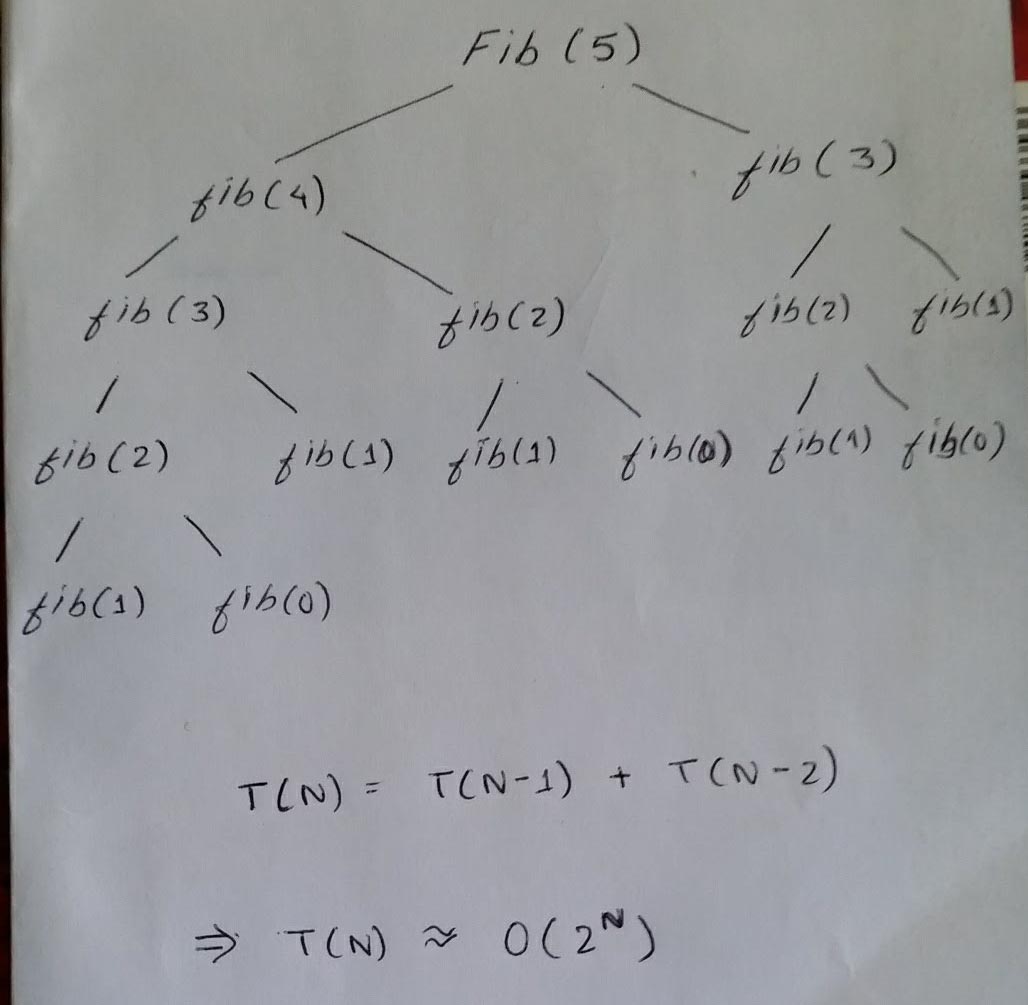 Fib (5)
fib(4) fib(3)
fib(3) fib(2) fib(2) fib(1)
fib(2) fib(1) fib(1) fib(0) fib(1) fib(0)
fib(1) fib(0)
T(N) = T(N-1) + T(N-2)
⇒ T(N) ≈ O(2ᴺ)